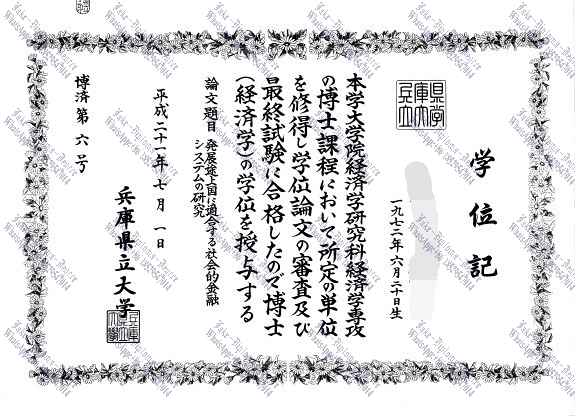 学位記
兵庫県
立大学
一九七二年六月二十日生
本学大学院経済学研究科経済学専攻
の博士課程において所定の単位
を修得し学位論文の審査及び
最終試験に合格したので博士
(経済学)の学位を授与する
論文題目 発展途上国に適合する社会的金融
システムの研究
平成二十一年七月一日
兵庫県立大学
博済第六号